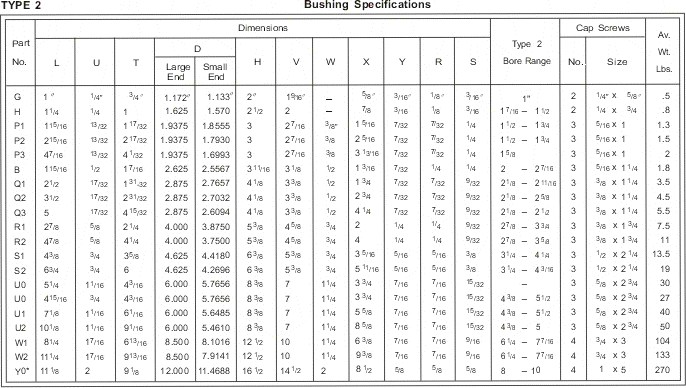 TYPE 2 Bushing Specifications
Dimensions Cap Screws
Part No. L U T D H V W X Y R S Type 2 Bore Range Av. Wt. Lbs.
Large End Small End No. Size
G 1" 1/4" 3/4" 1.172" 1.133" 2" 1 9/16" – 5/8" 3/16" 1/8" 3/16" 1" 2 1/4" x 5/8" .5
H 1 1/4 1/4 1 1.625 1.570 2 1/2 2 – 7/8 3/16 1/8 3/16 1 7/16 – 1 1/2 2 1/4 x 3/4 .8
P1 1 15/16 13/32 1 17/32 1.9375 1.8555 3 2 7/16 3/8" 1 5/16 7/32 7/32 1/4 1 1/2 – 1 3/4 3 5/16 x 1 1.3
P2 2 15/16 13/32 2 17/32 1.9375 1.7930 3 2 7/16 3/8 2 5/16 7/32 7/32 1/4 1 1/2 – 1 3/4 3 5/16 x 1 1.5
P3 4 7/16 13/32 4 1/32 1.9375 1.6993 3 2 7/16 3/8 3 13/16 7/32 7/32 1/4 1 5/8 3 5/16 x 1 2
B 1 15/16 1/2 1 7/16 2.625 2.5567 3 11/16 3 1/8 1/2 1 3/16 7/32 1/4 1/4 2 – 2 7/16 3 5/16 x 1 1/4 1.8
Q1 2 1/2 17/32 1 31/32 2.875 2.7657 4 1/8 3 3/8 1/2 1 3/4 7/32 7/32 9/32 2 1/8 – 2 11/16 3 3/8 x 1 1/4 3.5
Q2 3 1/2 17/32 2 31/32 2.875 2.7032 4 1/8 3 3/8 1/2 2 3/4 7/32 7/32 9/32 2 1/8 – 2 5/8 3 3/8 x 1 1/4 4.5
Q3 5 17/32 4 15/32 2.875 2.6094 4 1/8 3 3/8 1/2 4 1/4 7/32 7/32 9/32 2 1/8 – 2 1/2 3 3/8 x 1 1/4 5.5
R1 2 7/8 5/8 2 1/4 4.000 3.8750 5 3/8 4 5/8 3/4 2 1/4 1/4 9/32 2 7/8 – 3 3/4 3 3/8 x 1 3/4 7.5
R2 4 7/8 5/8 4 1/4 4.000 3.7500 5 3/8 4 5/8 3/4 4 1/4 1/4 9/32 2 7/8 – 3 5/8 3 3/8 x 1 3/4 11
S1 4 3/8 3/4 3 5/8 4.625 4.4180 6 3/8 5 3/8 3/4 3 5/16 5/16 5/16 3/8 3 1/4 – 4 1/4 3 1/2 x 2 1/4 13.5
S2 6 3/4 3/4 6 4.625 4.2696 6 3/8 5 3/8 3/4 5 11/16 5/16 5/16 3/8 3 1/4 – 4 3/16 3 1/2 x 2 1/4 19
U0 5 1/4 1 1/16 4 3/16 6.000 5.7656 8 3/8 7 1 1/4 3 3/4 7/16 7/16 15/32 – 3 5/8 x 2 3/4 30
U0 4 15/16 3/4 4 3/16 6.000 5.7656 8 3/8 7 1 1/4 3 3/4 7/16 7/16 15/32 4 3/8 – 5 1/2 3 5/8 x 2 3/4 27
U1 7 1/8 1 1/16 6 1/16 6.000 5.6485 8 3/8 7 1 1/4 5 5/8 7/16 7/16 15/32 4 3/8 – 5 1/2 3 5/8 x 2 3/4 40
U2 10 1/8 1 1/16 9 1/16 6.000 5.4610 8 3/8 7 1 1/4 8 5/8 7/16 7/16 15/32 4 3/8 – 5 3 5/8 x 2 3/4 50
W1 8 1/4 1 7/16 6 13/16 8.500 8.1016 12 1/2 10 1 1/4 6 3/8 7/16 7/16 9/16 6 1/4 – 7 7/16 4 3/4 x 3 104
W2 11 1/4 1 7/16 9 13/16 8.500 7.9141 12 1/2 10 1 1/4 9 3/8 7/16 7/16 9/16 6 1/4 – 7 7/16 4 3/4 x 3 133
Y0* 11 1/8 2 9 1/8 12.000 11.4688 16 1/2 14 1/2 2 8 1/2 5/8 5/8 5/8 8 – 10 4 1 x 5 270